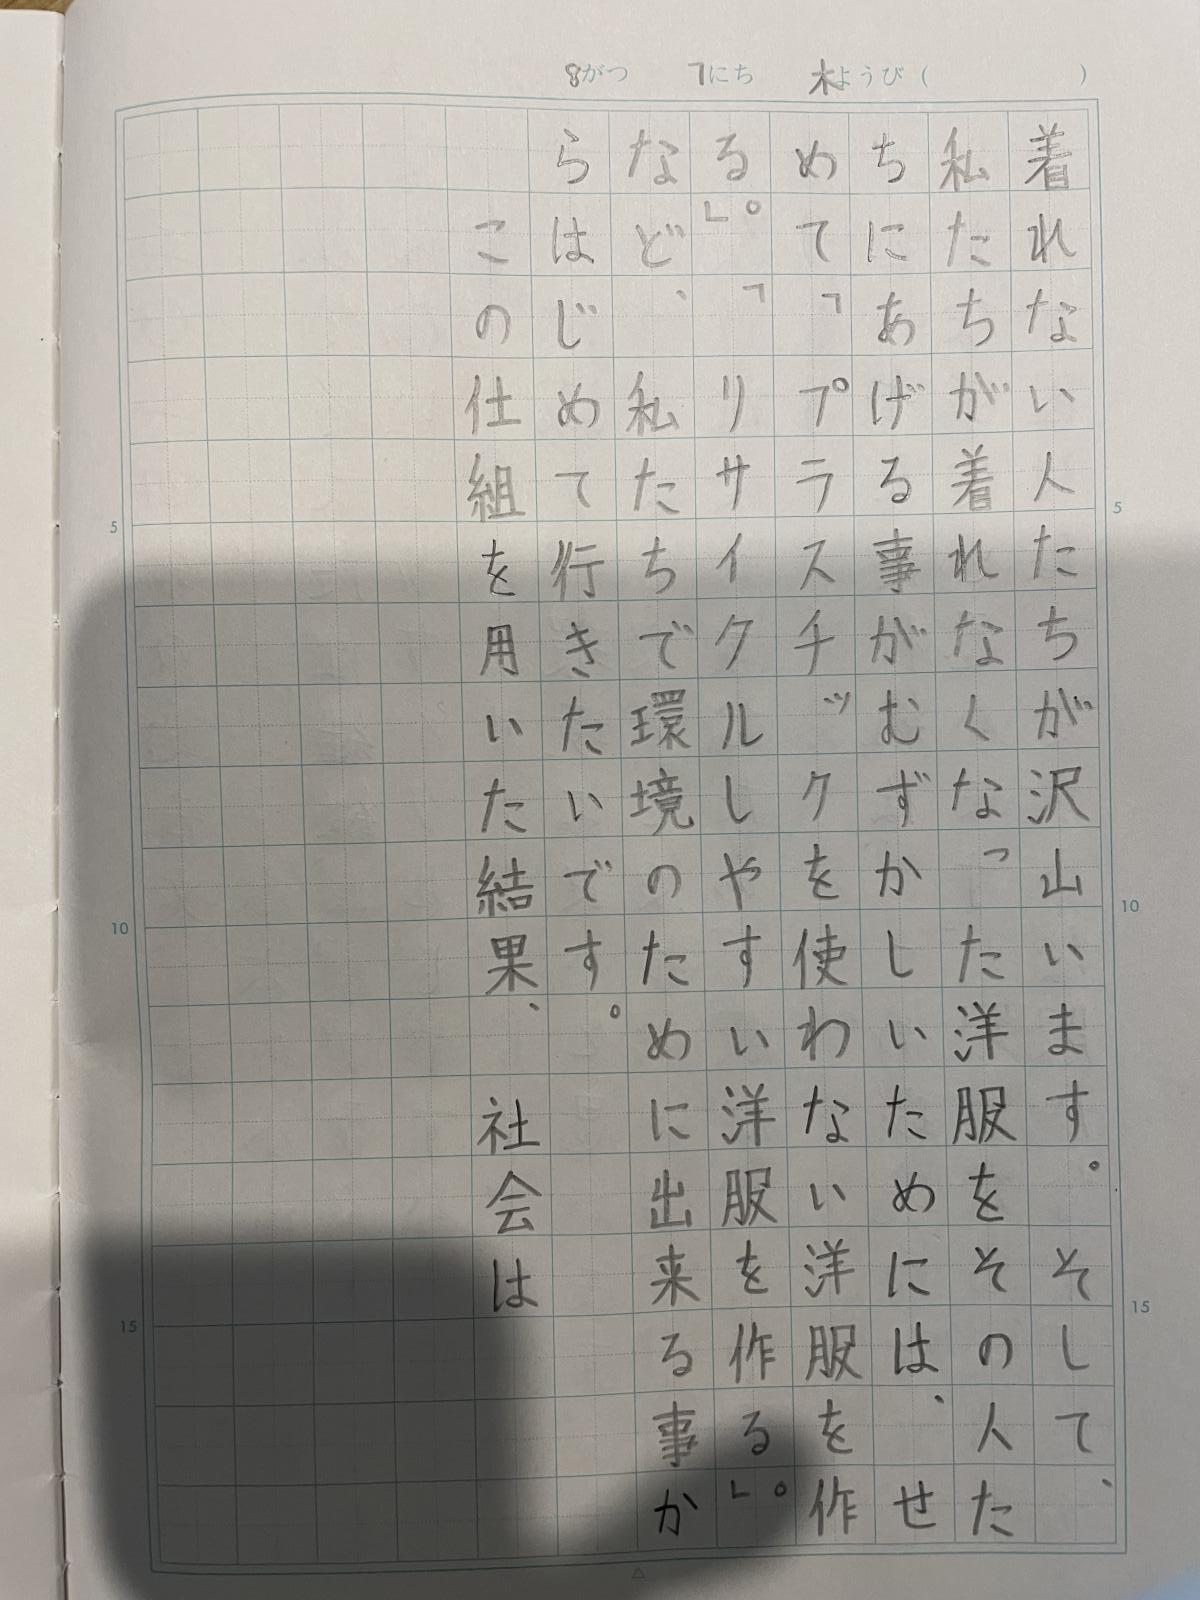 8がつ 7にち 木ようび( )
着れない人たちが沢山います。そして、
私たちが着れなくなった洋服をその人た
ちにあげる事がむずかしいためには、せ
めて「プラスチックを使わない洋服を作
る」。「リサイクルしやすい洋服を作る」。
など、私たちで環境のために出来る事か
らはじめて行きたいです。
この仕組を用いた結果、社会は
5
10
15
5
10
15